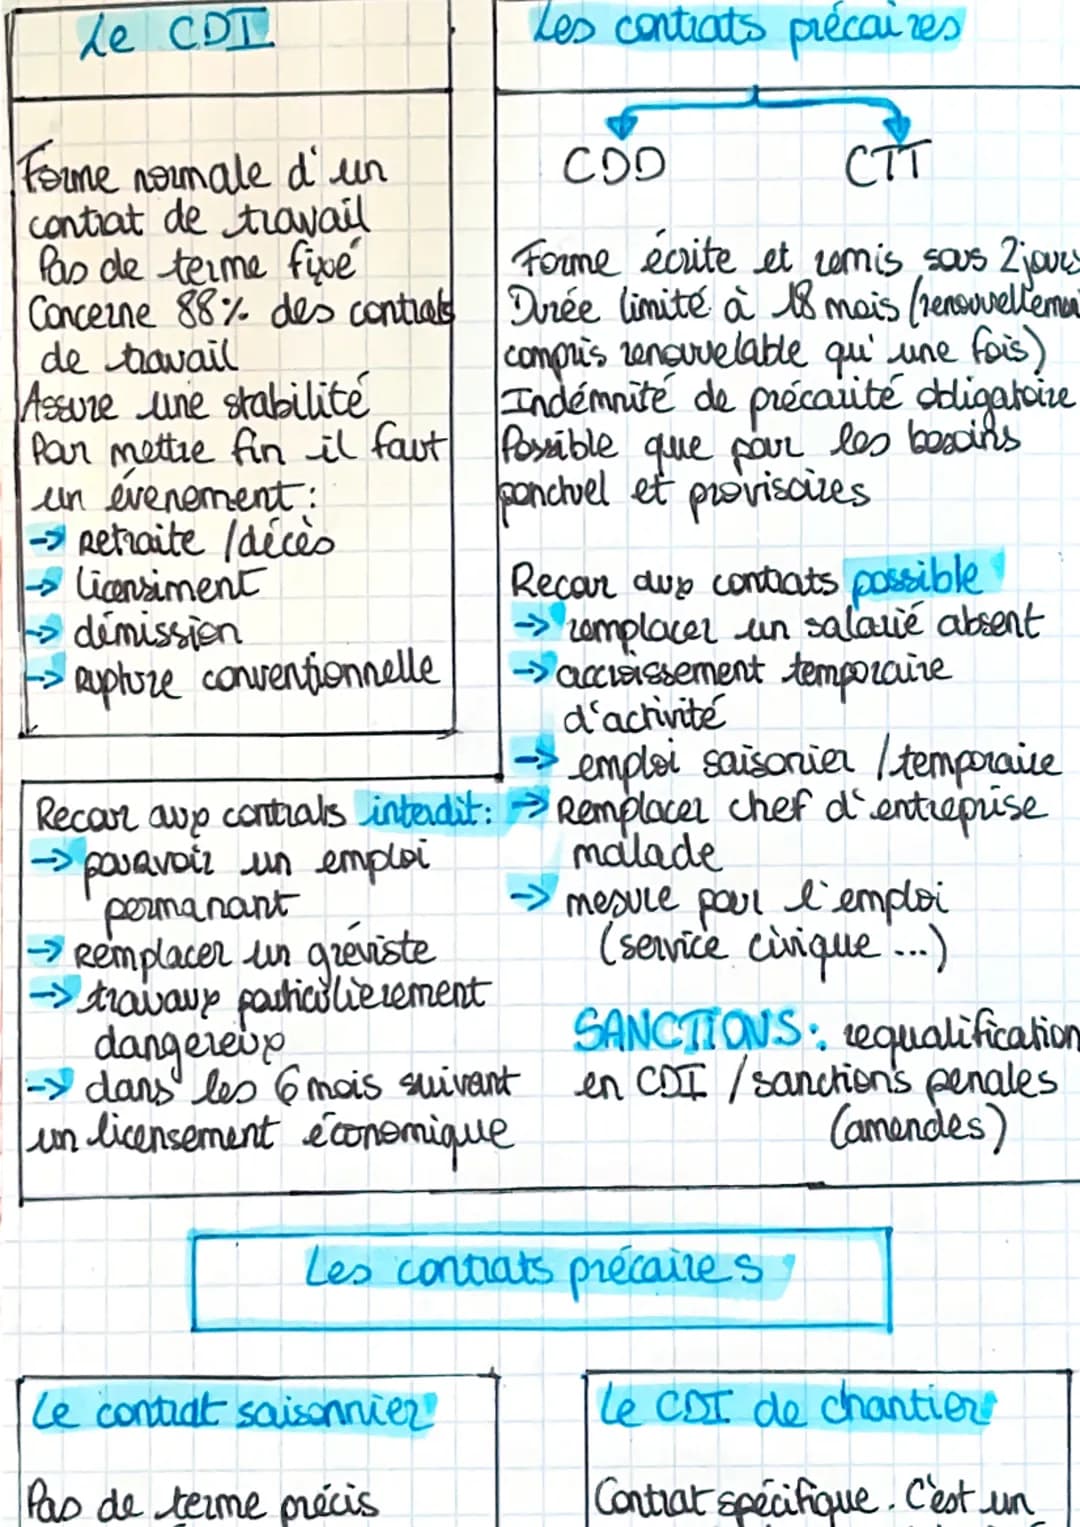 Le CDI
Forme normale d'un
contrat de travail
Pas de terme fixé
Concerne 88% des contrats
de travail
Assure une stabilité
Pour mettre fin il faut
un évenement :
→ Retraite / décès
→ licensiment
→ démission
→ Rupture conventionnelle
Les contrats précaires
CDD CTT
Forme écrite et remis sous 2 jours
Durée limité à 18 mois (renouvellemen
compris renouvelable qu'une fois)
Indémnité de précarité obligatoire
Possible que pour les besoins
ponctuel et provisoires
Recour aux contrats possible
→ remplacer un salarié absent
→ accroissement temporaire
d'activité
→ emploi saisonier / temporaire
→ Remplacer chef d'entreprise
malade
→ mesure pour l'emploi
(service civique ...)
Recour aux contrats interdit :
→ pouravoir un emploi
permanant
→ Remplacer un gréviste
→ travaux particulierement
dangereux
→ dans les 6 mois suivant
un licensement économique
SANCTIONS : requalification
en CDI / sanctions penales
(amendes)
Les contrats précaires
Le contrat saisonnier
Pas de terme précis
Le CDI de chantier
Contrat spécifique. C'est un